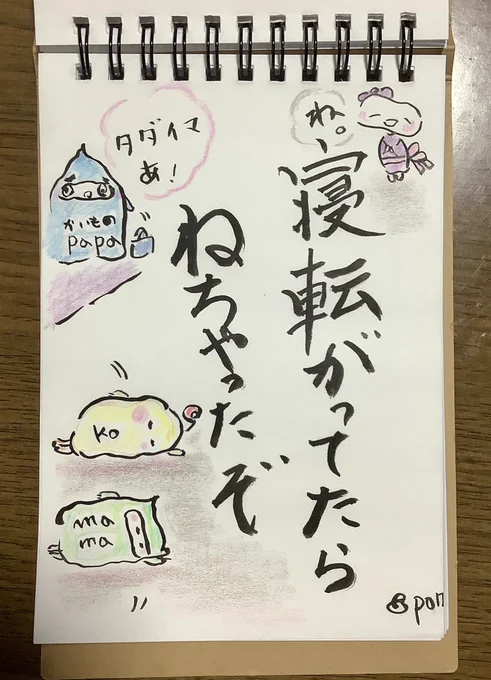 ね。
寝転がってたら
ねちゃったぞ
タダイマ
あ!
かいもの
papa
Ko
ma
ma
pon